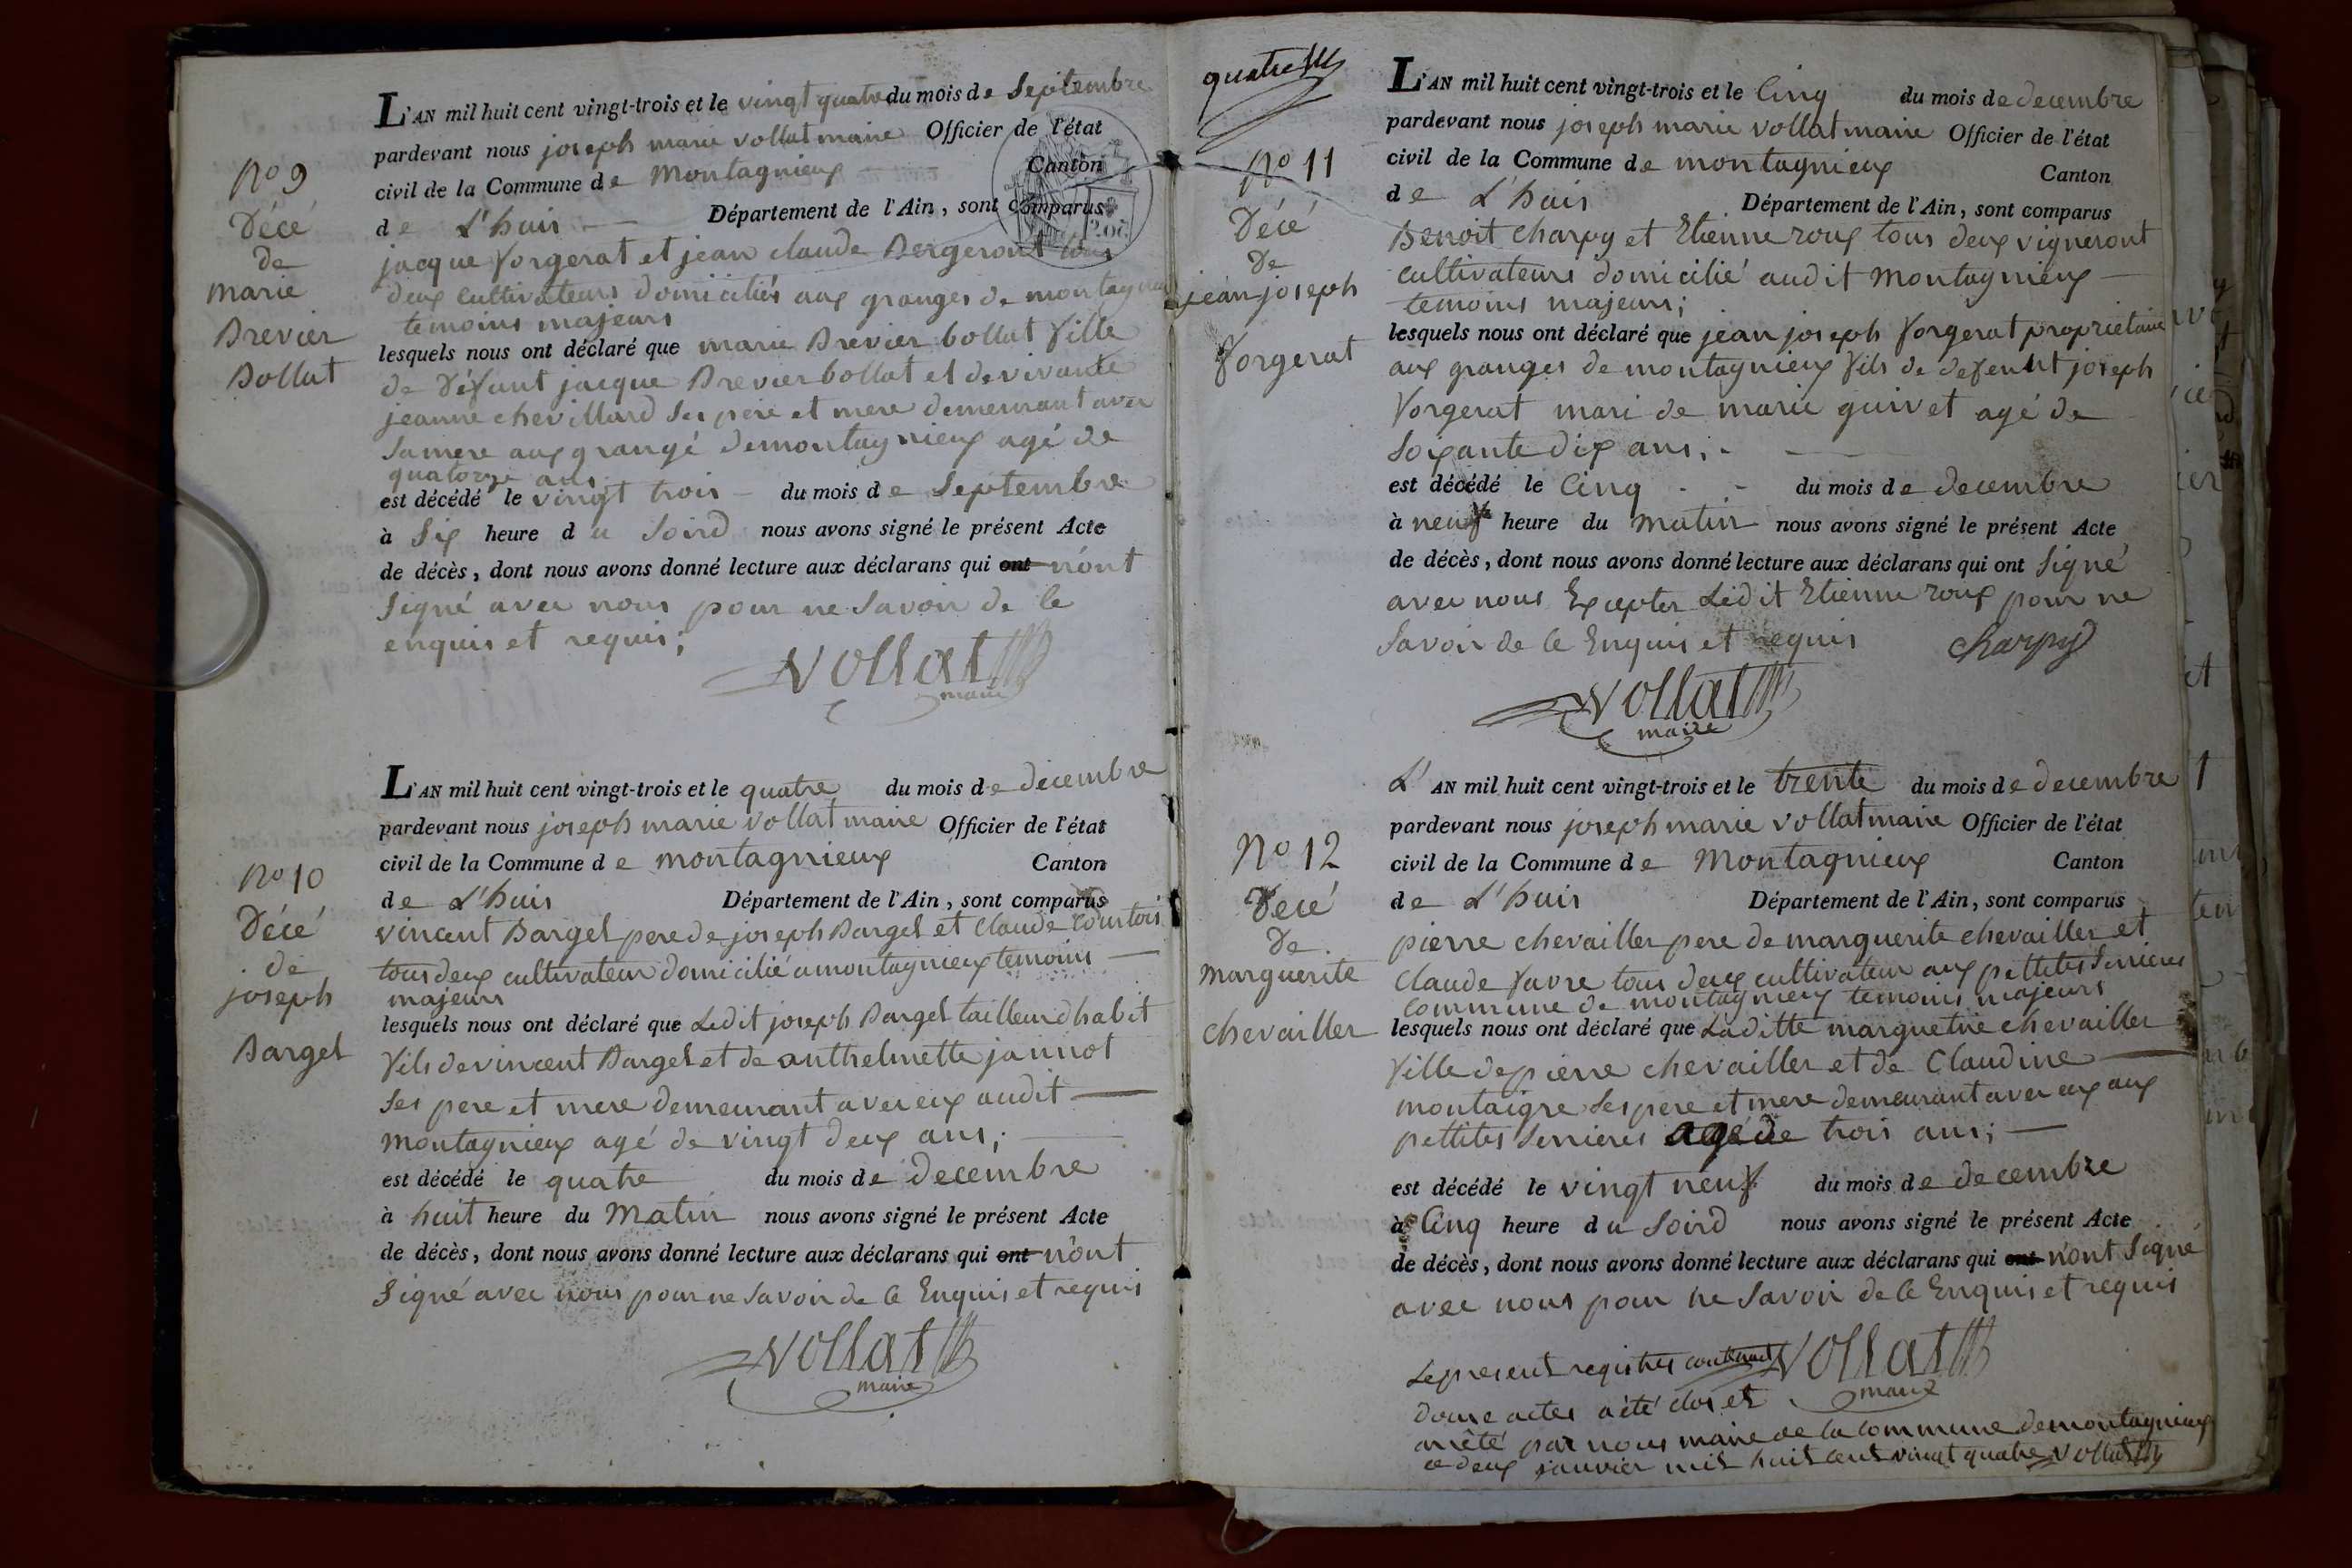 L'AN mil huit cent vingt-trois et le vingt quatre du mois de Septembre
pardevant nous joseph marie vollat maire Officier de l'état
civil de la Commune de Montagnieux Canton
de L'huis Département de l'Ain, sont comparus
jacque Forgerat et jean claude Bergeront tous
deux cultivateurs domiciliés aux granges de montagnieux
temoins majeurs
lesquels nous ont déclaré que marie Brevier bollat fille
de défunt jacque Brevier bollat et de vivante
jeanne chevillard ses pere et mere demeurant avec
sa mere aux grangé de montagnieux agé de
quatorze ans
est décédé le vingt trois du mois de Septembre
à Six heure du Soird nous avons signé le présent Acte
de décès, dont nous avons donné lecture aux déclarans qui ont n'ont
Signé avec nous pour ne Savoir de le
enquis et requis;
Vollat
maire
No 9
Décé
de
marie
Brevier
Bollat
L'AN mil huit cent vingt-trois et le quatre du mois de decembre
pardevant nous joseph marie vollat maire Officier de l'état
civil de la Commune de montagnieux Canton
de L'huis Département de l'Ain, sont comparus
vincent Bargel pere de joseph Bargel et Claude Courtois
tous deux cultivateur domicilié a montagnieux temoins
majeurs
lesquels nous ont déclaré que Ledit joseph Bargel tailleur d'habit
fils de vincent Bargel et de anthelmette jannot
Ses pere et mere demeurant avec eux audit
montagnieux agé de vingt deux ans;
est décédé le quatre du mois de decembre
à huit heure du Matin nous avons signé le présent Acte
de décès, dont nous avons donné lecture aux déclarans qui ont n'ont
Signé avec nous pour ne Savoir de le Enquis et requis
Vollat
maire
No 10
Décé
de
joseph
Bargel
quatre
L'AN mil huit cent vingt-trois et le Cinq du mois de decembre
pardevant nous joseph marie vollat maire Officier de l'état
civil de la Commune de montagnieux Canton
de L'huis Département de l'Ain, sont comparus
Benoit charpy et Etienne roux tous deux vigneront
cultivateurs domicilié audit montagnieux
temoins majeurs;
lesquels nous ont déclaré que jean joseph Forgerat proprietaire
aux granges de montagnieux fils de defunt joseph
Forgerat mari de marie guivet agé de
Soixante dix ans;
est décédé le Cinq du mois de decembre
à neuf heure du matin nous avons signé le présent Acte
de décès, dont nous avons donné lecture aux déclarans qui ont Signé
avec nous Excepter Ledit Etienne roux pour ne
Savoir de le Enquis et requis charpy
Vollat
maire
No 11
Décé
de
jean joseph
Forgerat
L'AN mil huit cent vingt-trois et le trente du mois de decembre
pardevant nous joseph marie vollat maire Officier de l'état
civil de la Commune de Montagnieux Canton
de L'huis Département de l'Ain, sont comparus
pierre chevailler pere de marguerite chevailler et
Claude favre tous deux cultivateur aux pettites Serrieres
Commune de montagnieux temoins majeurs
lesquels nous ont déclaré que Laditte marguerite chevailler
fille de pierre chevailler et de Claudine
montaigre Ses pere et mere demeurant avec eux aux
pettites Serrieres agé de trois ans;
est décédé le vingt neuf du mois de decembre
à Cinq heure du Soird nous avons signé le présent Acte
de décès, dont nous avons donné lecture aux déclarans qui ont n'ont Signé
avec nous pour ne Savoir de le Enquis et requis
Vollat
maire
No 12
Décé
de
marguerite
chevailler
Le present registres contenant
douze actes a été clos et
arrêté par nous maire de la commune de montagnieux
ce deux janvier mil huit cent vingt quatre Vollat